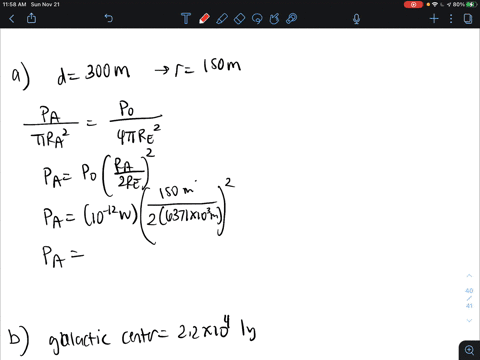 11:58 AM Sun Nov 21
80%
a) d = 300m → r = 150m
P_A / πR_A² = P_0 / 4πR_E²
P_A = P_0 (R_A / 2R_E)²
P_A = (10⁻¹² W) (150 m / 2(6371×10³m))²
P_A =
b) galactic center = 2.2×10⁴ ly
40
/
41